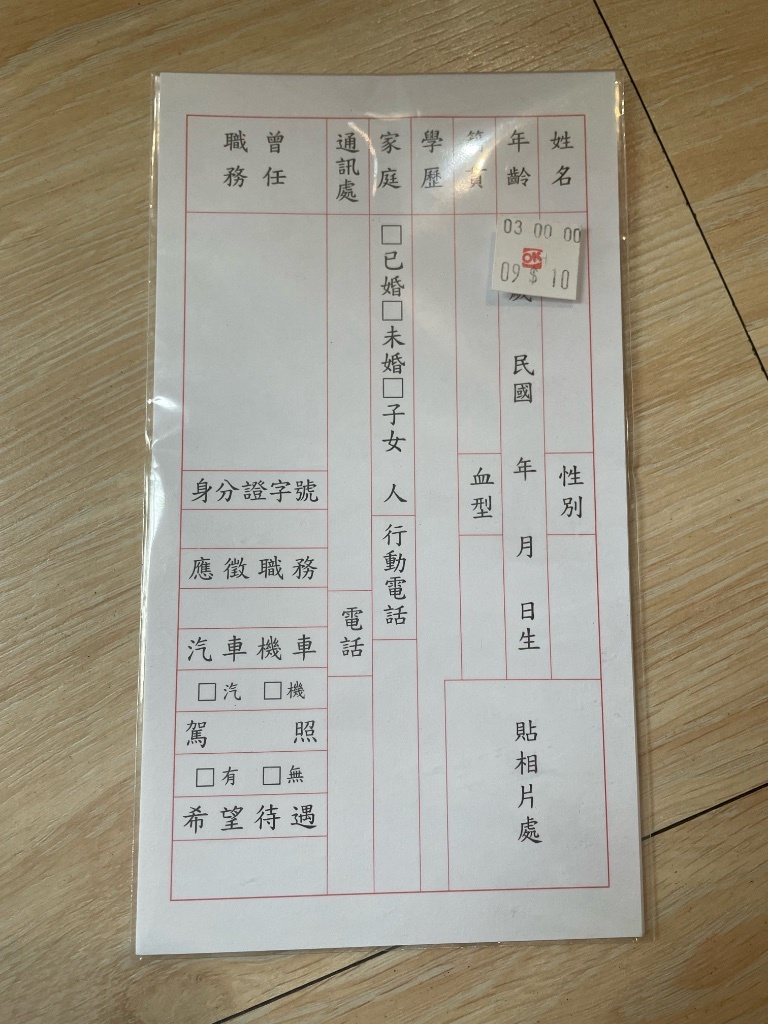 姓名
性別
年齡
歲 民國 年 月 日生
籍貫
血型
貼相片處
學歷
家庭
□已婚□未婚□子女 人
行動電話
通訊處
電話
曾任職務
身分證字號
應徵職務
汽車機車
□汽 □機
駕照
□有 □無
希望待遇
03 00 00
OK
09 $ 10